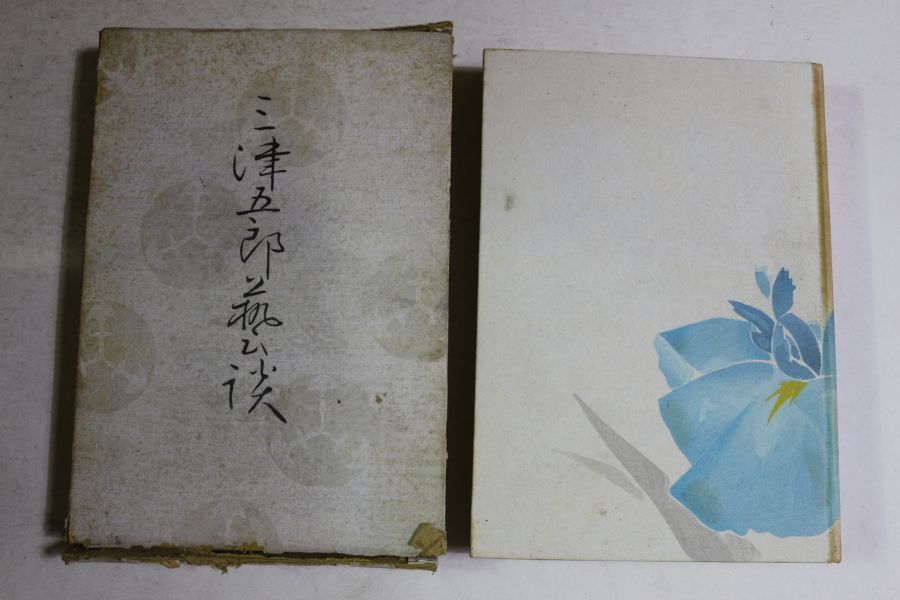 三津五郎藝談